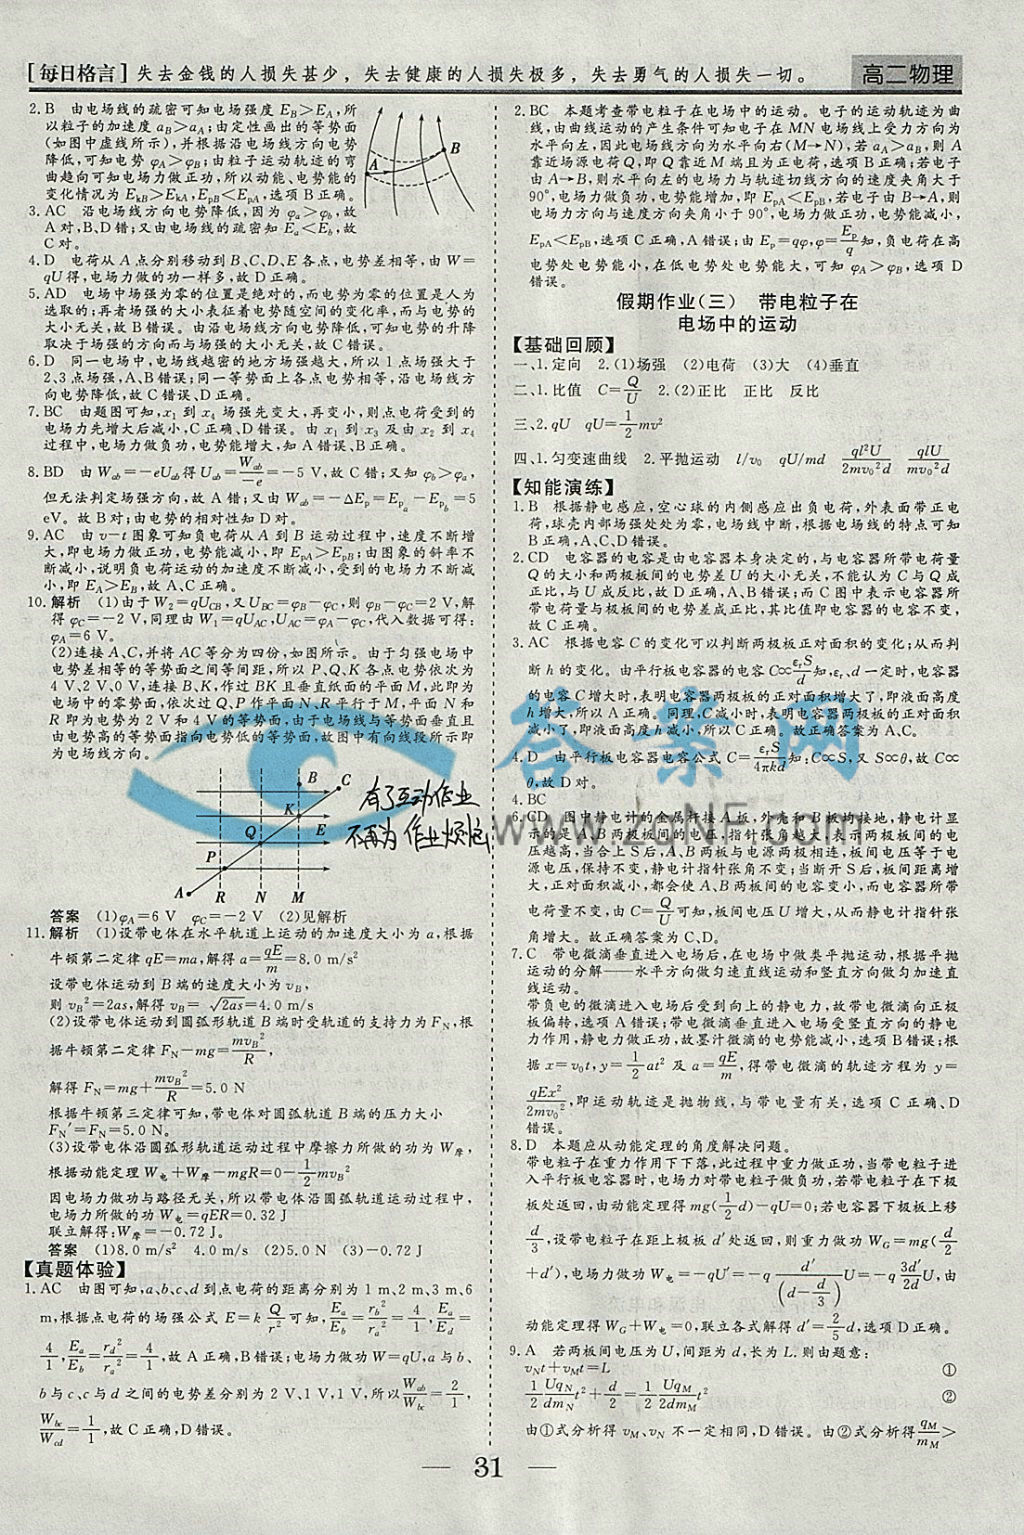 [每日格言]失去金钱的人损失甚少，失去健康的人损失极多，失去勇气的人损失一切。
高二物理
2.B　由电场线的疏密可知电场强度 E_B>E_A，所
以粒子的加速度 a_B>a_A；由定性画出的等势面
(如图中虚线所示)，并根据沿电场线方向电势
降低，可知电势 φ_A>φ_B；由粒子运动轨迹的弯
曲趋向可知电场力做正功，所以动能、电势能的
变化情况为 E_kB>E_kA，E_pB<E_pA，选项 B 正确。
A
B
3.AC　沿电场线方向电势降低，因为 φ_a>φ_b，故
A 对，B、D 错；又由电场线的疏密知 E_a<E_b，故
C 对。
4.D　电荷从 A 点分别移动到 B、C、D、E 各点，电势差相等，由 W=
qU 得，电场力做的功一样多，故 D 正确。
5.AD　电场中场强为零的位置是绝对的，而电势为零的位置是人为
选取的；再者场强的大小表征着电势随空间的变化率，而与电势的
大小无关，故 B 错误。由沿电场线方向电势降低，可知电势的升降
取决于场强的方向而与场强的大小无关，故 C 错误。
6.D　同一电场中，电场线越密的地方场强越大，所以 1 点场强大于
2、3 点场强，A、B 错误；同一等势面上各点电势相等，沿电场线方
向电势降低，故 C 错误、D 正确。
7.BC　由题图可知，x₁ 到 x₄ 场强先变大，再变小，则点电荷受到的
电场力先增大后减小，C 正确、D 错误。由 x₁ 到 x₃ 及由 x₂ 到 x₄
过程中，电场力做负功，电势能增大，知 A 错误、B 正确。
8.BD　由 W_ab=-eU_ab 得 U_ab=W_ab/-e=-5 V，故 C 错；又知 φ_b>φ_a，
但无法判定场强方向，故 A 错；又由 W_ab=-ΔE_p=E_pa-E_pb=5
eV。故 B 对；由电势的相对性知 D 对。
9.AC　由 v-t 图象可知负电荷从 A 到 B 运动过程中，速度不断增
大，即电场力做正功，电势能减小，即 E_pA>E_pB；由图象的斜率不
断减小，说明负电荷运动的加速度不断减小，受到的电场力不断减
小，即 E_A>E_B，故 A、C 正确。
10.解析　(1)由于 W₂=qU_CB，又 U_BC=φ_B-φ_C，则 φ_B-φ_C=2 V，解
得 φ_C=-2 V，同理由 W₁=qU_AC，U_AC=φ_A-φ_C，代入数据可得：
φ_A=6 V。
(2)连接 A、C，并将 AC 等分为四份，如图所示。由于匀强电场中
电势差相等的等势面之间等间距，所以 P、Q、K 各点电势依次为
4 V、2 V、0 V，连接 B、K，作过 BK 且垂直纸面的平面 M，此即为
电场中的零势面，依次过 Q、P 作平面 N、R 平行于 M，平面 N 和
R 即为电势为 2 V 和 4 V 的等势面，由于电场线与等势面垂直且
由电势高的等势面指向电势低的等势面，故图中有向线段所示即
为电场线方向。
B C
K
Q E
P
A R N M
有了互动作业
不再为 作业烦恼
答案　(1)φ_A=6 V　φ_C=-2 V　(2)见解析
11.解析　(1)设带电体在水平轨道上运动的加速度大小为 a，根据
牛顿第二定律 qE=ma，解得 a=qE/m=8.0 m/s²
设带电体运动到 B 端的速度大小为 v_B，
则 v_B²=2as，解得 v_B=√2as=4.0 m/s
(2)设带电体运动到圆弧形轨道 B 端时受轨道的支持力为 F_N，根
据牛顿第二定律 F_N-mg=mv_B²/R，
解得 F_N=mg+mv_B²/R=5.0 N
根据牛顿第三定律可知，带电体对圆弧轨道 B 端的压力大小
F_N′=F_N=5.0 N。
(3)设带电体沿圆弧形轨道运动过程中摩擦力所做的功为 W_摩，
根据动能定理 W_电+W_摩-mgR=0-1/2mv_B²
因电场力做功与路径无关，所以带电体沿圆弧轨道运动过程中，
电场力所做的功 W_电=qER=0.32 J
联立解得：W_摩=-0.72 J。
答案　(1)8.0 m/s²　4.0 m/s　(2)5.0 N　(3)-0.72 J
【真题体验】
1.AC　由图可知，a、b、c、d 到点电荷的距离分别为 1 m、2 m、3 m、6
m，根据点电荷的场强公式 E=kQ/r² 可知，E_a/E_b=r_b²/r_a²=4/1，E_a/E_d=
4/1，E_a/E_b=r_d²/r_a²=4/1，故 A 正确，B 错误；电场力做功 W=qU，a 与 b、
b 与 c、c 与 d 之间的电势差分别为 2 V、1 V、1 V，所以W_ab/W_bc=2/1，
W_bc/W_cd=1/1，故 C 正确，D 错误。
2.BC　本题考查带电粒子在电场中的运动。电子的运动轨迹为曲
线，由曲线运动的产生条件可知电子在 MN 电场线上受力方向为
水平向左，因此电场线方向为水平向右(M→N)，若 a_A>a_B，则 A
靠近场源电荷 Q，即 Q 靠近 M 端且为正电荷，选项 B 正确；若电子
由 A→B，则水平向左的电场力与轨迹切线方向的速度夹角大于
90°，电场力做负功，电势能增加，即 E_pA<E_pB，若电子由 B→A，则
电场力方向与速度方向夹角小于 90°，电场力做正功，电势能减小，
E_pA<E_pB，选项 C 正确，A 错误；由 E_p=qφ，φ=E_p/q知，负电荷在高
电势处电势能小，在低电势处电势能大，可知 φ_A>φ_B，选项 D
错误。
假期作业(三)　带电粒子在
电场中的运动
【基础回顾】
一、1.定向　2.(1)场强　(2)电荷　(3)大　(4)垂直
二、1.比值　C=Q/U　2.(2)正比　正比　反比
三、2.qU　qU=1/2mv²
四、1.匀变速曲线　2.平抛运动　l/v₀　qU/md　ql²U/2mv₀²d　qlU/mv₀²d
【知能演练】
1.B　根据静电感应，空心球的内侧感应出负电荷，外表面带正电
荷，球壳内部场强处处为零，电场线中断，根据电场线的特点可知
B 正确，A、C、D 错误。
2.CD　电容器的电容是由电容器本身决定的，与电容器所带电荷量
Q 的大小和两极板间的电势差 U 的大小无关，不能认为 C 与 Q 成
正比，与 U 成反比，故 D 正确，A、B 错误；而 C 图中表示电容器所
带电荷量与极板间的电势差成正比，其比值即电容器的电容不变，
故 C 正确。
3.AC　根据电容 C 的变化可以判断两极板正对面积的变化；从而判
断 h 的变化。由平行板电容器的电容 C∝ε_rS/d知，ε_r、d 一定时，电容器
的电容 C 增大时，表明电容器两极板的正对面积增大了，即液面高度
h 增大，所以 A 正确。同理，C 减小时，表明电容器两极板的正对面积
减小了，即液面高度 h 减小，所以 C 正确。故正确答案为 A、C。
4.D　由平行板电容器电容公式 C=ε_rS/4πkd知：C∝S，又 S∝θ，故 C∝
θ，故 D 对。
4.BC
6.CD　图中静电计的金属杆接 A 板，外壳和 B 板均接地，静电计显
示的是 A、B 两极板间的电压，指针张角越大，表示两极板间的电
压越高，当合上 S 后，A、B 两板与电源两极相连，板间电压等于电
源电压，保持不变，静电计指针张角不变；当断开 S 后，板间距离增
大，正对面积减小，都会使 A、B 两极板间的电容变小，而电容器所带
电荷量不变，由 C=Q/U可知，板间电压 U 增大，从而静电计指针张
角增大。故正确答案为 C、D。
7.C　带电微滴垂直进入电场后，在电场中做类平抛运动，根据平抛
运动的分解——水平方向做匀速直线运动和竖直方向做匀加速直
线运动。
带负电的微滴进入电场后受到向上的静电力，故带电微滴向正极
板偏转，选项 A 错误；带电微滴垂直进入电场受竖直方向的静电
力作用，静电力做正功，故墨汁微滴的电势能减小，选项 B 错误；根
据 x=v₀t，y=1/2at² 及 a=qE/m，得带电微滴的轨迹方程为 y=
qEx²/2mv₀²，即运动轨迹是抛物线，与带电量有关，选项 C 正确、D
错误。
8.D　本题应从动能定理的角度解决问题。
带电粒子在重力作用下下落，此过程中重力做正功，当带电粒子进
入平行板电容器时，电场力对带电粒子做负功，若带电粒子在下极
板处返回，由动能定理得 mg(1/2d)-qU=0；若电容器下极板上移
d/3，设带电粒子在距上极板 d′处返回，则重力做功 W_G=mg(d/2
+d′)，电场力做功 W_电=-qU′=-q d′/(d-d/3)U=-q3d′/2dU，由
动能定理得 W_G+W_电=0，联立各式解得 d′=2/5d，选项 D 正确。
9.A　若两板间电压为 U，间距为 d，长为 L.则由题意：
v_Nt+v_Mt=L　①
1/2 Uq_N/dm_N t²+d/2=1/2 Uq_M/2dm_M t²　②
由①式分析得 v_M、v_N 不一定相同，D 错误。由②式分析得q_M/m_M>
答案网
www.zqNF.com
31